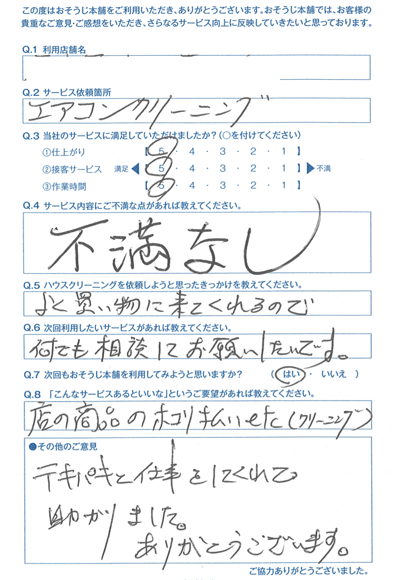 この度はおそうじ本舗をご利用いただき、ありがとうございます。おそうじ本舗では、お客様の
貴重なご意見・ご感想をいただき、さらなるサービス向上に反映していきたいと思っております。
Q.1 利用店舗名
Q.2 サービス依頼箇所
エアコンクリーニング
Q.3 当社のサービスに満足していただけましたか？(○を付けてください)
①仕上がり 【 5 ・ 4 ・ 3 ・ 2 ・ 1 】
②接客サービス 満足 ◀【 5 ・ 4 ・ 3 ・ 2 ・ 1 】▶ 不満
③作業時間 【 5 ・ 4 ・ 3 ・ 2 ・ 1 】
Q.4 サービス内容にご不満な点があれば教えてください。
不満なし
Q.5 ハウスクリーニングを依頼しようと思ったきっかけを教えてください。
よく買い物に来てくれるので
Q.6 次回利用したいサービスがあれば教えてください。
何でも相談してお願いしたいです。
Q.7 次回もおそうじ本舗を利用してみようと思いますか？ ( はい ・ いいえ )
Q.8 「こんなサービスあるといいな」というご要望があれば教えてください。
店の商品のホコリ払い (クリーニング)
●その他のご意見
テキパキと仕事をしてくれて
助かりました。
ありがとうございます。
ご協力ありがとうございました。